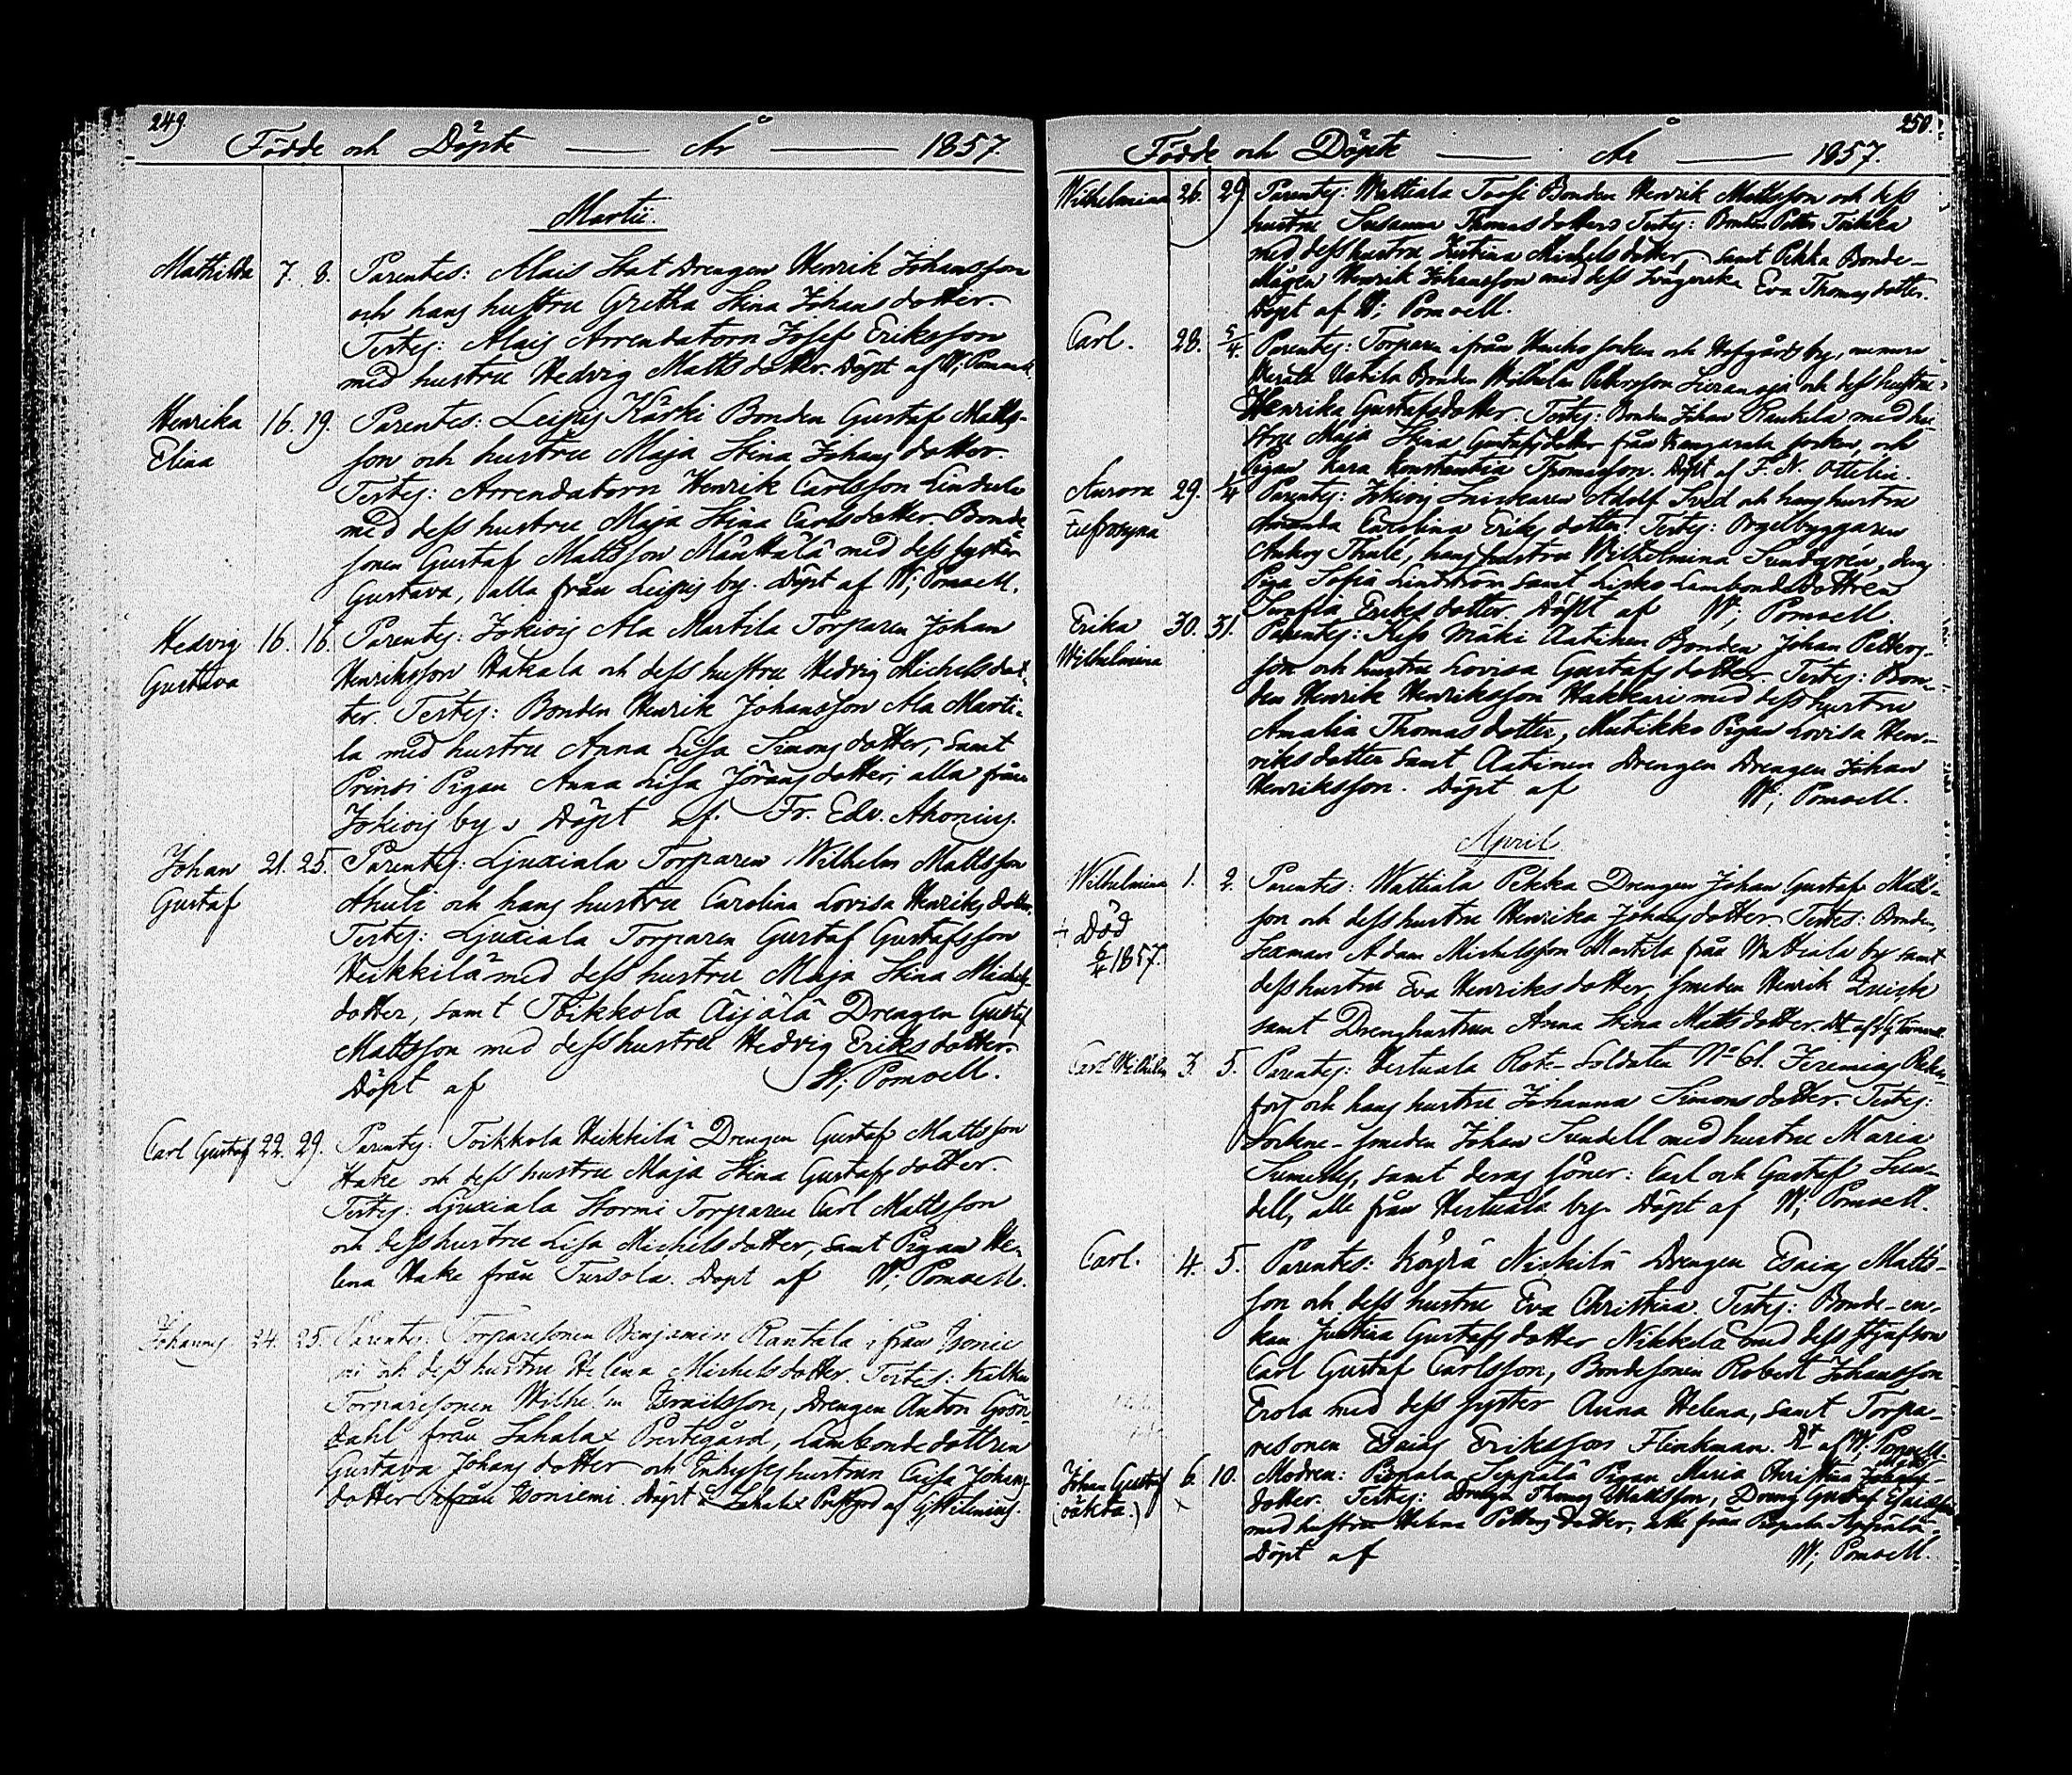 249
Födde och Döpte — År — 1857.
Martii.
Mathilda 7. 8. Parentes: Alais Stat Drengen Henrik Johansson
och hans hustru Gretha Stina Johansdotter.
Testes: Alais Arrendatorn Josef Eriksson
med hustru Hedvig Mattsdotter. Döpt af W; Pomoell.
Henrika 16. 19. Parentes: Leipis Kärki Bonden Gustaf Matts-
Elina son och hustru Maja Stina Johansdotter.
Testes: Arrendatorn Henrik Carlsson
med dess hustru Maja Stina Carlsdotter. Bonde
sonen Gustaf Mattsson Mänttälä med dess syster
Gustava, alla från Leipis by. Döpt af W; Pomoell.
Hedvig 16. 16. Parentes: Jokiois Ala Martila Torparen Johan
Gustava Henriksson Hakala och dess hustru Hedvig Michelsdot-
ter. Testes: Bonden Henrik Johansson Ala Marti-
la med hustru Anna Lisa Simonsdotter, samt
Prinsi Pigan Anna Lisa Jöransdotter; alla från
Jokiois by. Döpt af Fr. Edv. Ahonius.
Johan 21. 25. Parentes: Ljuxiala Torparen Wilhelm Mattsson
Gustaf Ahuli och hans hustru Carolina Lovisa Henriksdotter.
Testes: Ljuxiala Torparen Gustaf Gustafsson
Heikkilä med dess hustru Maja Stina Michels-
dotter, samt Toikkola Äijälä Drengen Gustaf
Mattsson med dess hustru Hedvig Eriksdotter.
Döpt af W; Pomoell.
Carl Gustaf 22. 29. Parentes: Toikkola Heikkilä Drengen Gustaf Mattsson
Hake och dess hustru Maja Stina Gustafsdotter.
Testes: Ljuxiala Stormi Torparen Carl Mattsson
och dess hustru Lisa Michelsdotter, samt Pigan He-
lena Hake från Tursola. Döpt af W; Pomoell.
Johannes 24. 25. Parentes: Torparesonen Benjamin Rantala ifrån Isonie
mi och dess hustru Helena Michelsdotter. Testes:
Torparesonen Wilhelm Israelsson, Drengen Anton Grön
dahl från Sahalax Prestegård, Landbondedottren
Gustava Johansdotter och Inhyseshustrun Caisa Johans-
dotter från Isoniemi. Döpt i Sahalax Prestgård af
250.
Födde och Döpte — År — 1857.
Wilhelmina 26. 29. Parentes: Wattiala Bonden Henrik Mattsson och dess
hustru Susanna Thomasdotter. Testes: Bonden Petter
med dess hustru Justina Michelsdotter, samt Pekka Bonde-
mågen Henrik Johansson med dess Svägerska Eva Thomasdotter.
Döpt af W; Pomoell.
Carl. 28. 5/4. Parentes: Torparen ifrån socken och Hofgårds by, numera
Bonden Wilhelm Petersson och dess hustru
Henrika Gustafsdotter. Testes: Bonden Johan med hu-
stru Maja Stina Gustafsdotter från Kangasala socken, och
Pigan Konstantia Thomasson. Döpt af F. N. Ottelin.
Aurora 29. 1/4 Parentes: Jokiois Snickaren Adolf och hans hustru
Eufrosyna Amanda Carolina Eriksdotter. Testes: Orgelbyggaren
Anders Thulé, hans hustru Wilhelmina Sundgrén, dess
Piga Sofia Lindström samt Landbondedottren
Eriksdotter. Döpt af W; Pomoell.
Erika 30. 31. Parentes: Mäki Aatinen Bonden Johan Petters-
Wilhelmina son och hustru Lovisa Gustafsdotter. Testes: Bon-
den Henrik Henriksson Hakkari med dess hustru
Amalia Thomasdotter, Mutikko Pigan Lovisa Hen-
riksdotter samt Aatinen Drengen Drengen Johan
Henriksson. Döpt af W; Pomoell.
April
Wilhelmina 1. 2. Parentes: Wattiala Pekka Drengen Johan Gustaf Matts-
+ Död son och dess hustru Henrika Johansdotter. Testes: Bonden,
6/4 1857. Sexman Adam Michelsson Martila från Wattiala by samt
dess hustru Eva Henriksdotter, smeden Henrik
samt Drenghustrun Anna Stina Mattsdotter.
Carl Wilhelm 3. 5. Parentes: Vestuala Rote-Soldaten No 61. Jeremias
fors och hans hustru Johanna Simonsdotter. Testes:
Sockne-smeden Johan Sundell med hustru Maria
samt deras söner: Carl och Gustaf Sun-
dell, alla från Vestuala by. Döpt af W; Pomoell.
Carl. 4. 5. Parentes: Drengen Esaias Matts-
son och dess hustru Eva Christina. Testes: Bonde-en-
kan Justina Gustafsdotter med dess styfson
Carl Gustaf Carlsson, Bondesonen Robert Johansson
Erola med dess syster Anna Helena, samt Torpa-
resonen Esaias Eriksson Flinkman. Dt af W; Pomoell.
Johan Gustaf 6. 10. Modren: Seppälä Pigan Maria Christina Johans-
(oäkta.) dotter. Testes: Drengen Thomas Mattsson, Dreng Gustaf Esaiasson
med hustru Helena Pettersdotter, alla från Seppälä.
Döpt af W; Pomoell.